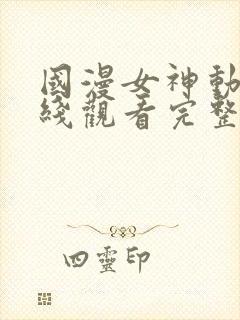 國漫女神動
綫觀看完整
四靈印